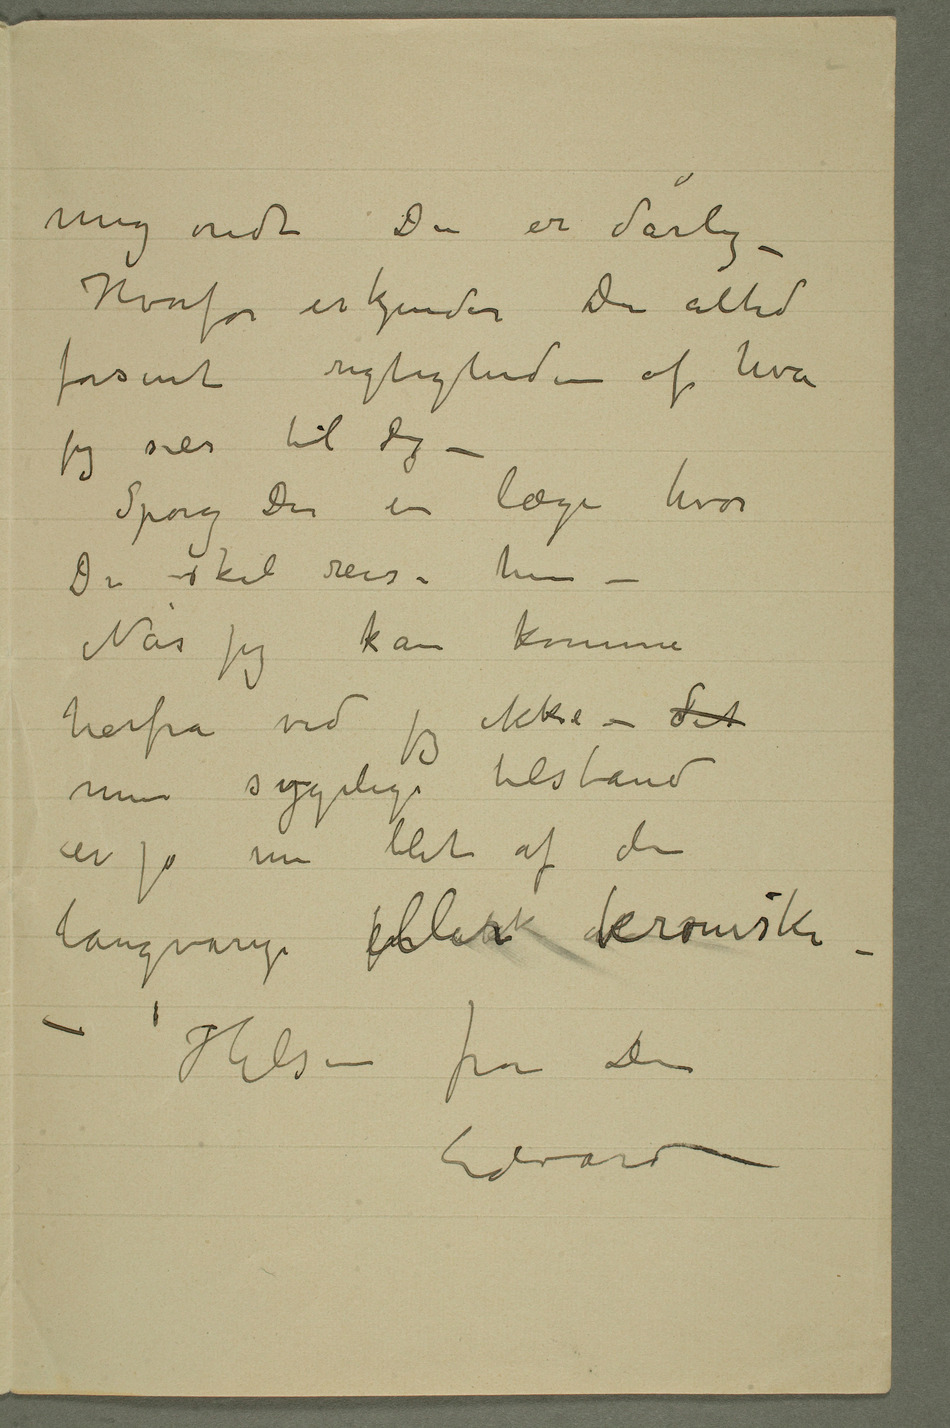 mig ondt Du er dårlig –
Hvorfor erkjender Du altid
forsent rigtigheden af hva
jeg sier til dig –
Spørg Du en læge hvor
Du skal reise hen –
Når jeg kan komme
herfra ved jeg ikke – det
min sygelige tilstand
er jo nu blet af den
langvarige kroniske –
– Hilsen fra Din
Edvard